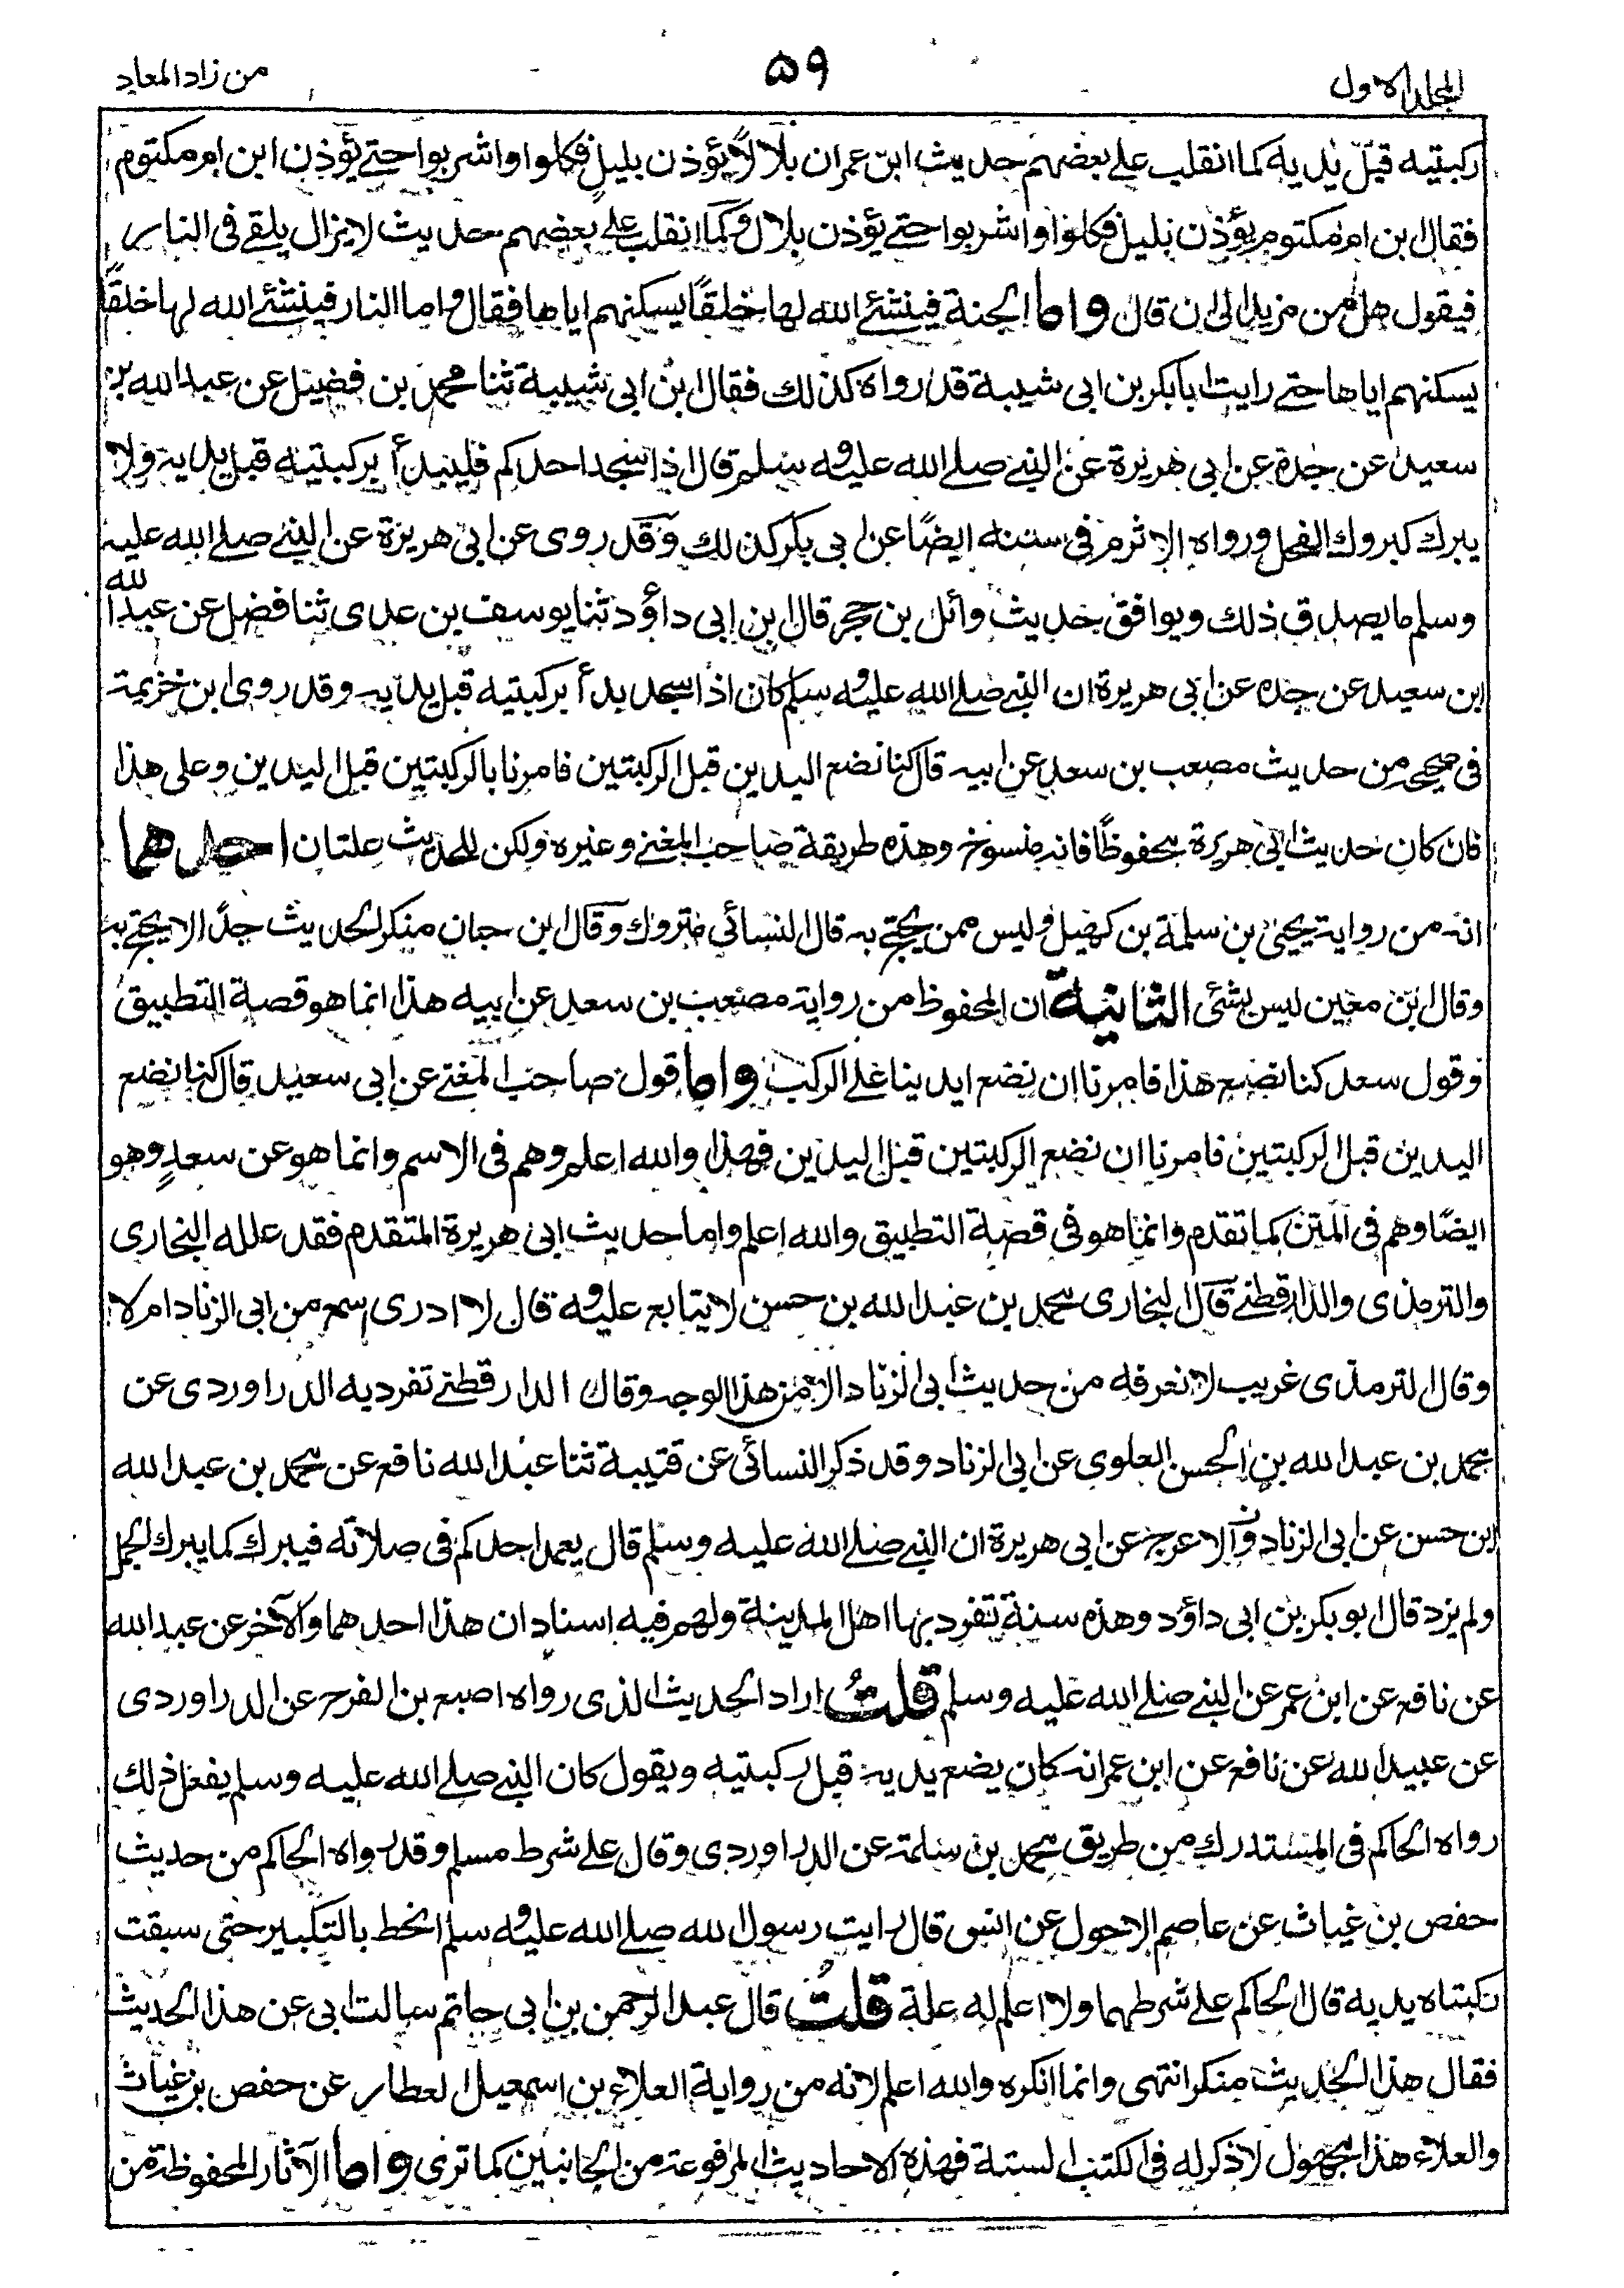 المجلد الاول
۵۹
من زاد المعاد
ركبتيه قبل يديه كما انقلب على بعضهم حديث ابن عمر ان بلالاً يؤذن بليل فكلوا واشربوا حتے يؤذن ابن ام مكتوم
فقال ابن ام مكتوم يؤذن بليل فكلوا واشربوا حتے يؤذن بلال وكما انقلب علے بعضهم حديث لا يزال يلقے فى النار
فيقول هل من مزيد الى ان قال واما الجنة فينشئے الله لها خلقاً يسكنهم اياها فقال واما النار فينشئے الله لها خلقاً
يسكنهم اياها حتے رايت ابا بكر بن ابى شيبة قد رواه كذلك فقال ابن ابى شيبة ثنا محمد بن فضيل عن عبد الله بن
سعيد عن جده عن ابى هريرة عن النبے صلے الله عليه وسلم قال اذا سجد احدكم فليبدأ بركبتيه قبل يديه ولا
يبرك كبروك الفحل ورواه الاثرم فى سننه ايضًا عن ابى بكر كذلك وقد روى عن ابى هريرة عن النبے صلے الله عليه
وسلم ما يصدق ذلك ويوافق حديث وائل بن حجر قال ابن ابى داؤد ثنا يوسف بن عدى ثنا فضل عن عبد الله
ابن سعيد عن جده عن ابى هريرة ان النبے صلے الله عليه وسلم كان اذا سجد بدأ بركبتيه قبل يديه وقد روى ابن خزيمة
فى صحيحه من حديث مصعب بن سعد عن ابيه قال كنا نضع اليدين قبل الركبتين فامرنا بالركبتين قبل اليدين وعلى هذا
فان كان حديث ابى هريرة محفوظًا فانه منسوخ وهذه طريقة صاحب المغنے وغيره ولكن للحديث علتان احدهما
انه من رواية يحيى بن سلمة بن كهيل وليس ممن يحتج به قال النسائى متروك وقال ابن حبان منكر الحديث جدًا لا يحتج به
وقال ابن معين ليس بشئى الثانية ان المحفوظ من رواية مصعب بن سعد عن ابيه هذا انما هو قصة التطبيق
وقول سعد كنا نضع هذا فامرنا ان نضع ايدينا علے الركب واما قول صاحب المغنے عن ابى سعيد قال كنا نضع
اليدين قبل الركبتين فامرنا ان نضع الركبتين قبل اليدين فهذا والله اعلم وهم فى الاسم وانما هو عن سعدٍ وهو
ايضًا وهم فى المتن كما تقدم وانما هو فى قصة التطبيق والله اعلم واما حديث ابى هريرة المتقدم فقد علله البخارى
والترمذى والدارقطنے قال البخارى محمد بن عبد الله بن حسن لا يتابع عليه وقال لا ادرى سمع من ابى الزناد ام لا
وقال الترمذى غريب لا نعرفه من حديث ابى الزناد الا من هذا الوجه وقال الدارقطنے تفرد به الدراوردى عن
محمد بن عبد الله بن الحسن العلوى عن ابى الزناد وقد ذكر النسائى عن قتيبة ثنا عبد الله نافع عن محمد بن عبد الله
ابن حسن عن ابى الزناد والاعرج عن ابى هريرة ان النبے صلے الله عليه وسلم قال يعمد احدكم فى صلاته فيبرك كما يبرك الجمل
ولم يزد قال ابو بكر بن ابى داؤد وهذه سنة تفرد بها اهل المدينة ولهم فيه اسنادان هذا احدهما والآخر عن عبد الله
عن نافع عن ابن عمر عن النبے صلے الله عليه وسلم قلتُ اراد الحديث الذى رواه اصبع بن الفرج عن الدراوردى
عن عبيد الله عن نافع عن ابن عمر انه كان يضع يديه قبل ركبتيه ويقول كان النبے صلے الله عليه وسلم يفعل ذلك
رواه الحاكم فى المستدرك من طريق محمد بن سلمة عن الدراوردى وقال علے شرط مسلم وقد رواه الحاكم من حديث
حفص بن غياث عن عاصم الاحول عن انس قال رايت رسول الله صلے الله عليه وسلم انحط بالتكبير حتى سبقت
ركبتاه يديه قال الحاكم علے شرطهما ولا اعلم له علة قلتُ قال عبد الرحمن بن ابى حاتم سالت ابى عن هذا الحديث
فقال هذا الحديث منكر انتهى وانما انكره والله اعلم لانه من رواية العلاء بن اسمعيل العطار عن حفص بن غياث
والعلاء هذا مجهول لا ذكر له فى الكتب الستة فهذه الاحاديث المرفوعة من الجانبين كما ترى واما الآثار المحفوظة من